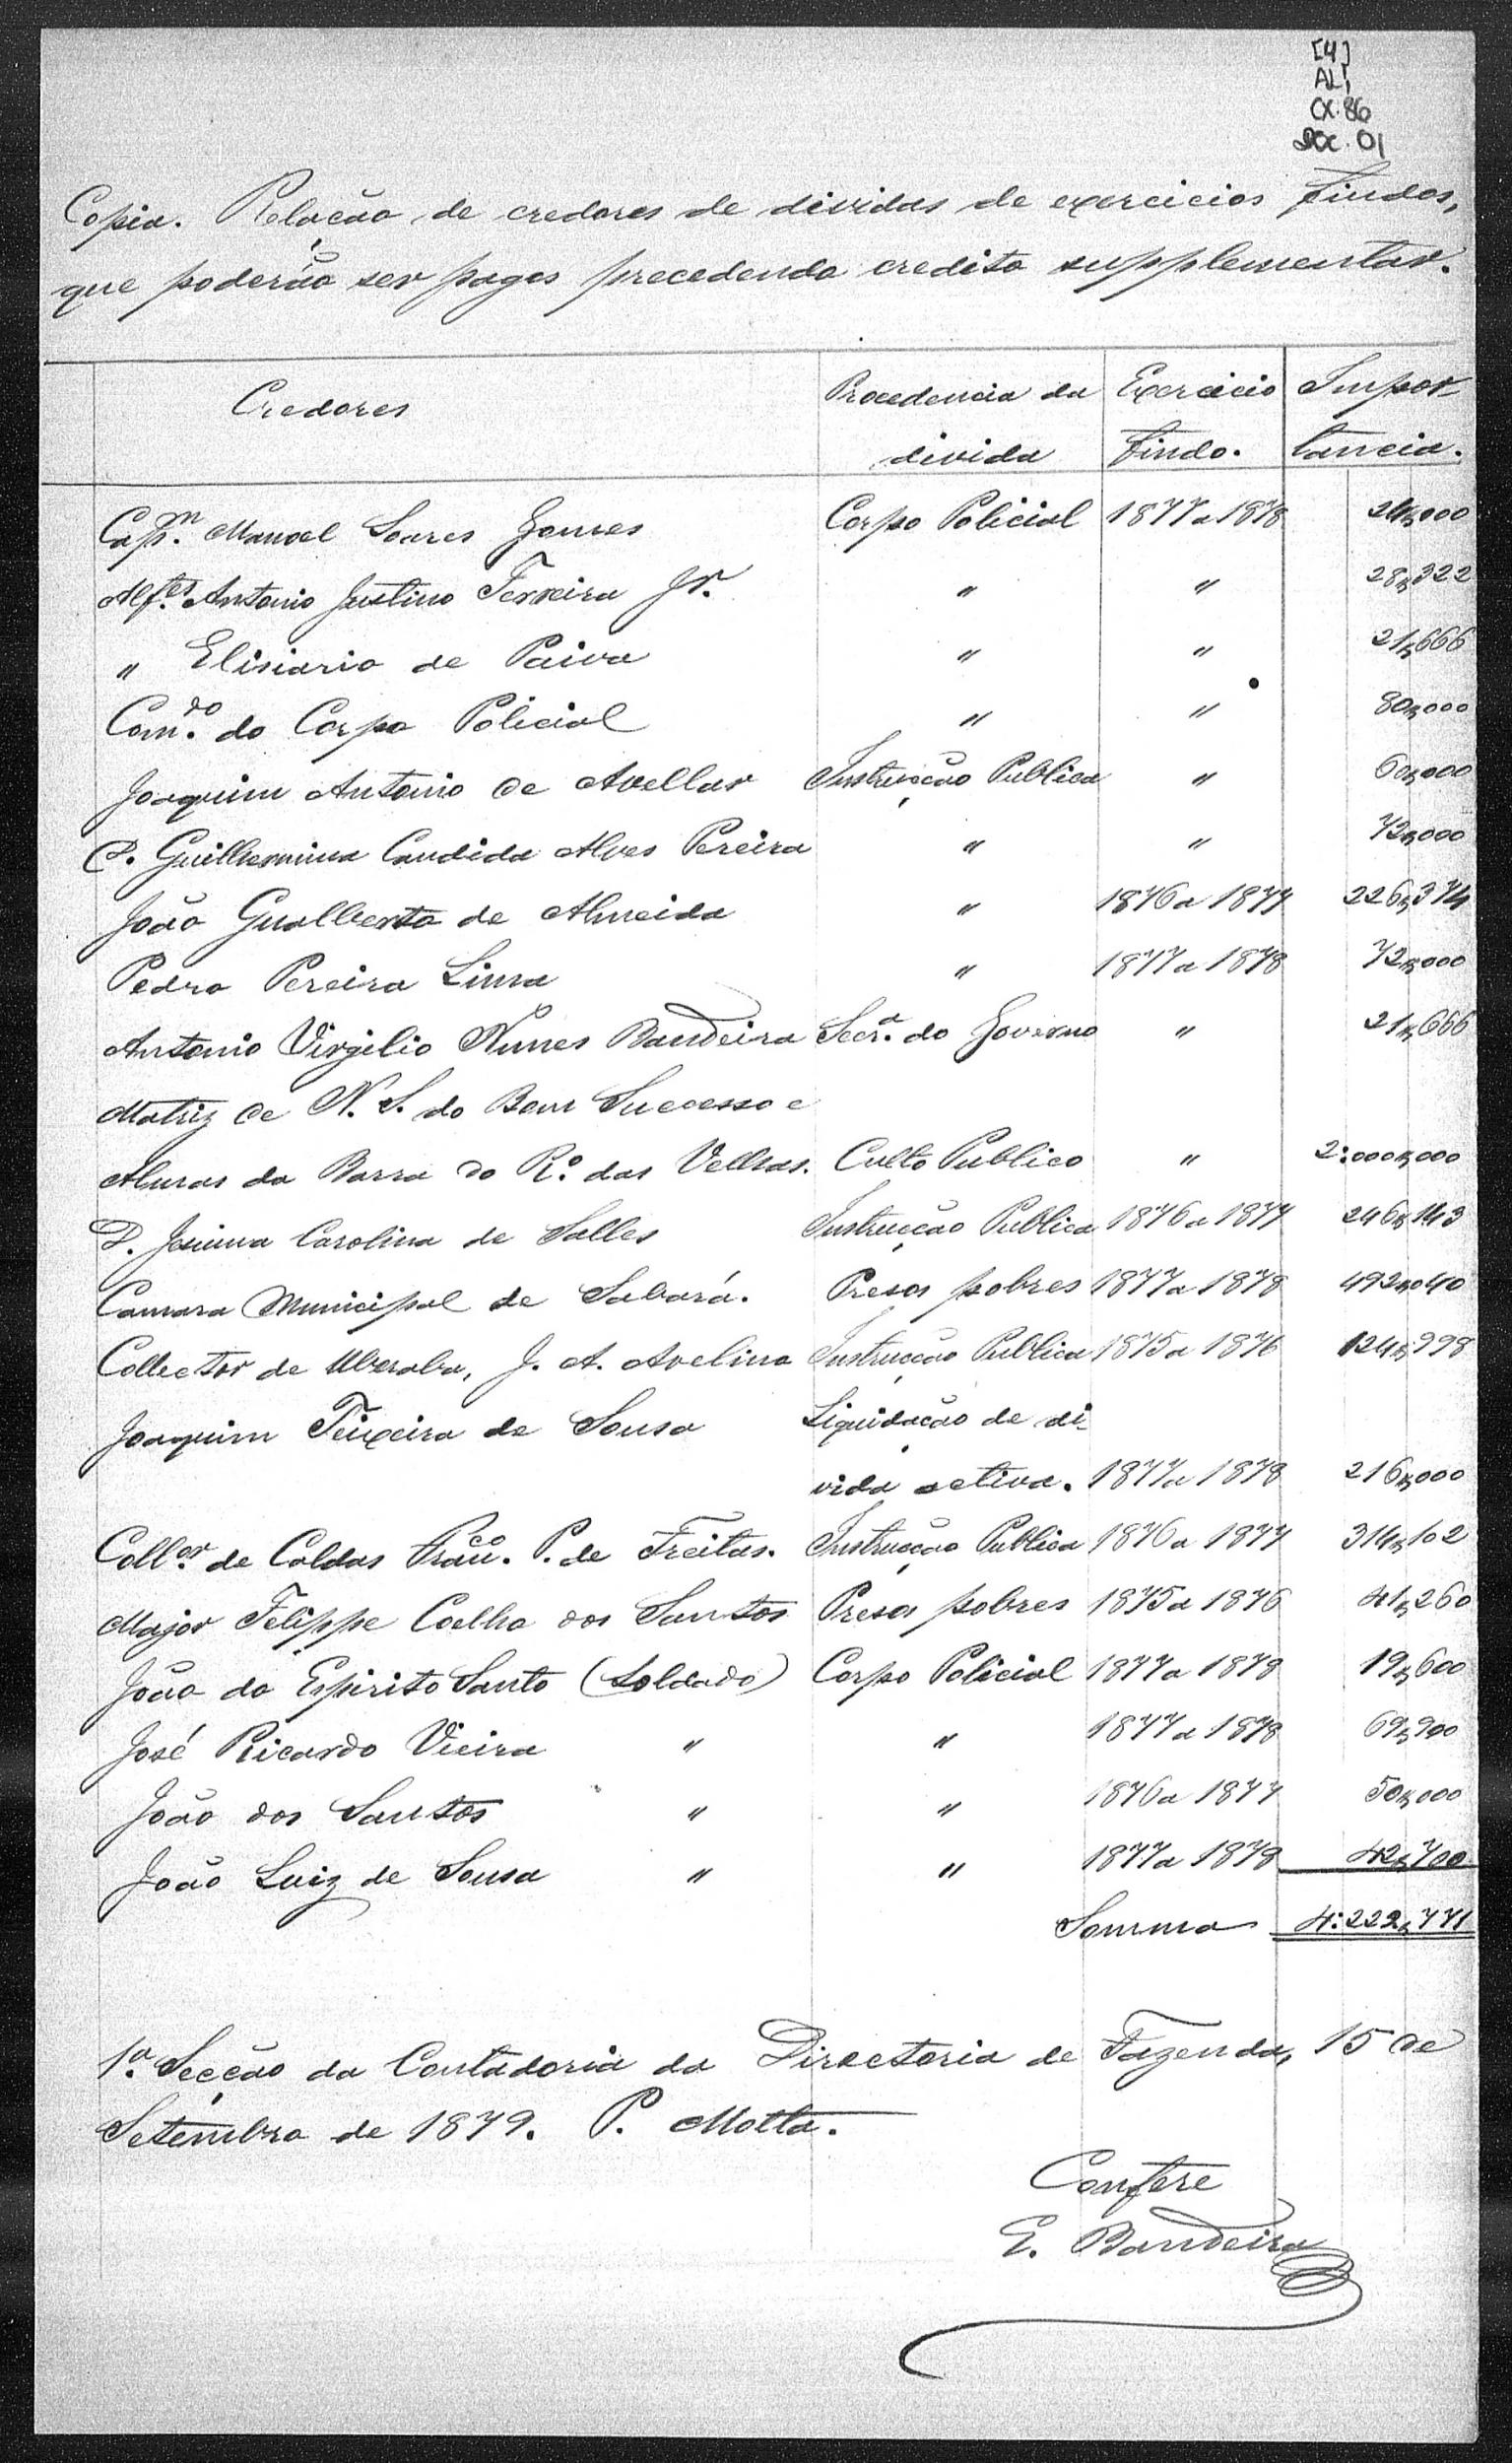 [4]
AL1
CX. 86
DOC. 01
Copia. Relação de credores de dividas de exercicios findos,
que poderão ser pagos precedendo credito supplementar.
Credores Procedencia da Exercicio Impor-
divida findo. tancia.
Capm. Manoel Soares Gomes Corpo Policial 1877 a 1878 24$000
Alfes. Antonio Justino Ferreira Jr. " " 28$322
" Elisiario de Paiva " " 21$666
Comdo. do Corpo Policial " " 80$000
Joaquim Antonio de Avellar Instrucção Publica " 60$000
D. Guilhermina Candida Alves Pereira " " 72$000
João Gualberto de Almeida " 1876 a 1877 226$374
Pedro Pereira Lima " 1877 a 1878 72$000
Antonio Virgilio Nunes Bandeira Secra. do Governo " 21$666
Matriz de N. S. do Bom Successo e
Almas da Barra do Ro. das Velhas. Culto Publico " 2:000$000
D. Carolina de Salles Instrucção Publica 1876 a 1877 246$143
Camara Municipal de Sabará. Presos pobres 1877 a 1878 492$040
Collector de Uberaba, J. A. Avelino Instrucção Publica 1875 a 1876 124$998
Joaquim Teixeira de Sousa Liquidação de di-
vida activa. 1877 a 1878 216$000
Collor. de Caldas Francco. P. de Freitas. Instrucção Publica 1876 a 1877 314$102
Major Felippe Coelho dos Santos Presos pobres 1875 a 1876 41$260
João do Espirito Santo (Soldado) Corpo Policial 1877 a 1878 19$600
José Ricardo Vieira " " 1877 a 1878 69$900
João dos Santos " " 1876 a 1877 50$000
João Luiz de Sousa " " 1877 a 1878 42$700
Somma 4:222$771
1a. Secção da Contadoria da Directoria de Fazenda, 15 de
Setembro de 1879. P. Motta.
Confere
E. Bandeira